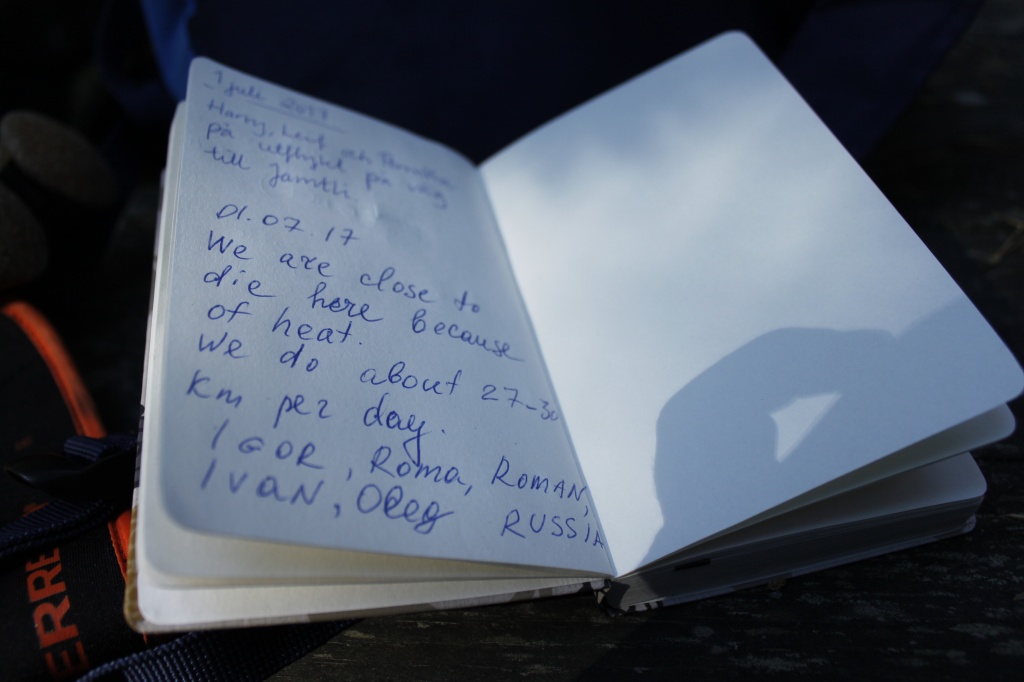 1 juli 2017
Harry, Leif och Pernilla
på utflykt på väg
till Jamtli.
01.07.17
We are close to
die here because
of heat.
We do about 27-30
Km per day.
IGOR, Roma, ROMAN,
IVAN, Oleg RUSSIA
ERRE